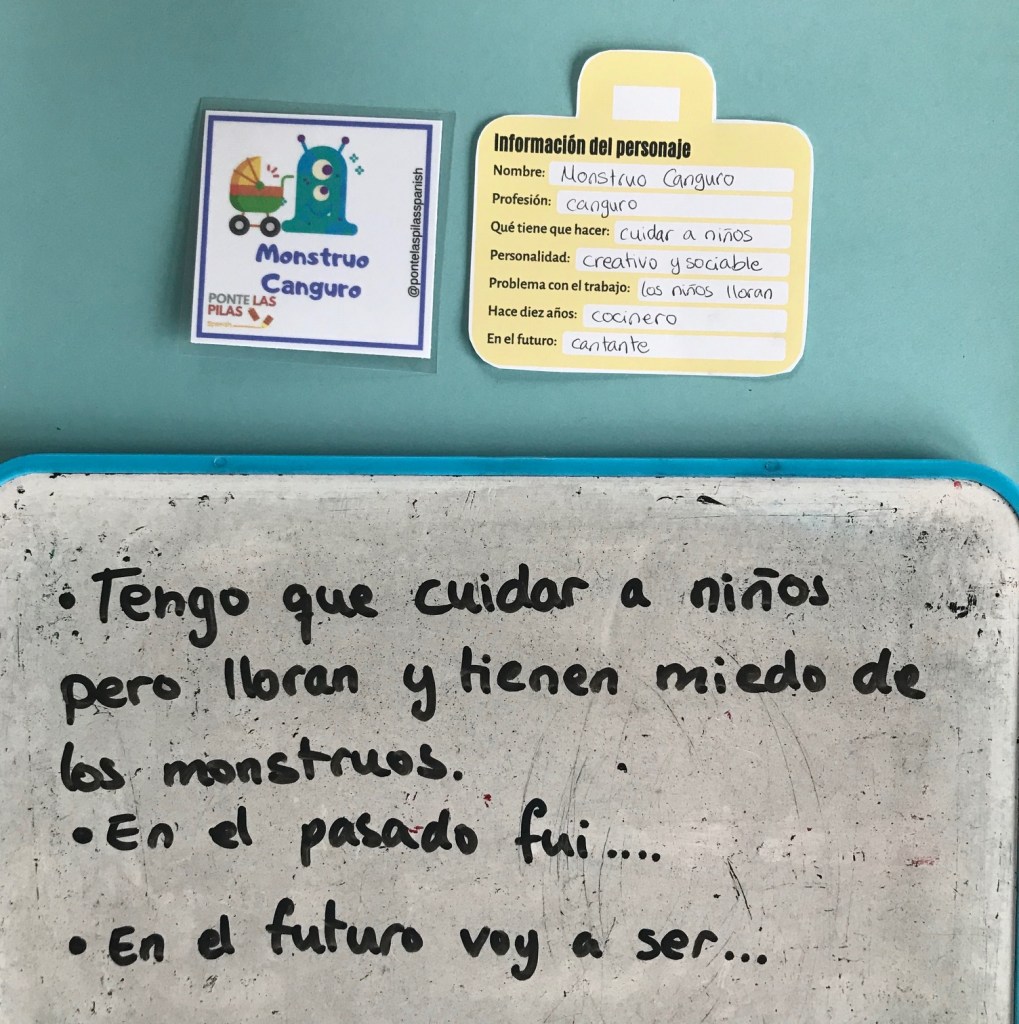 Monstruo
Canguro
PONTE LAS
PILAS
Spanish
@pontelaspilasspanish
Información del personaje
Nombre: Monstruo Canguro
Profesión: canguro
Qué tiene que hacer: cuidar a niños
Personalidad: creativo y sociable
Problema con el trabajo: los niños lloran
Hace diez años: cocinero
En el futuro: cantante
• Tengo que cuidar a niños
pero lloran y tienen miedo de
los monstruos.
• En el pasado fui....
• En el futuro voy a ser...